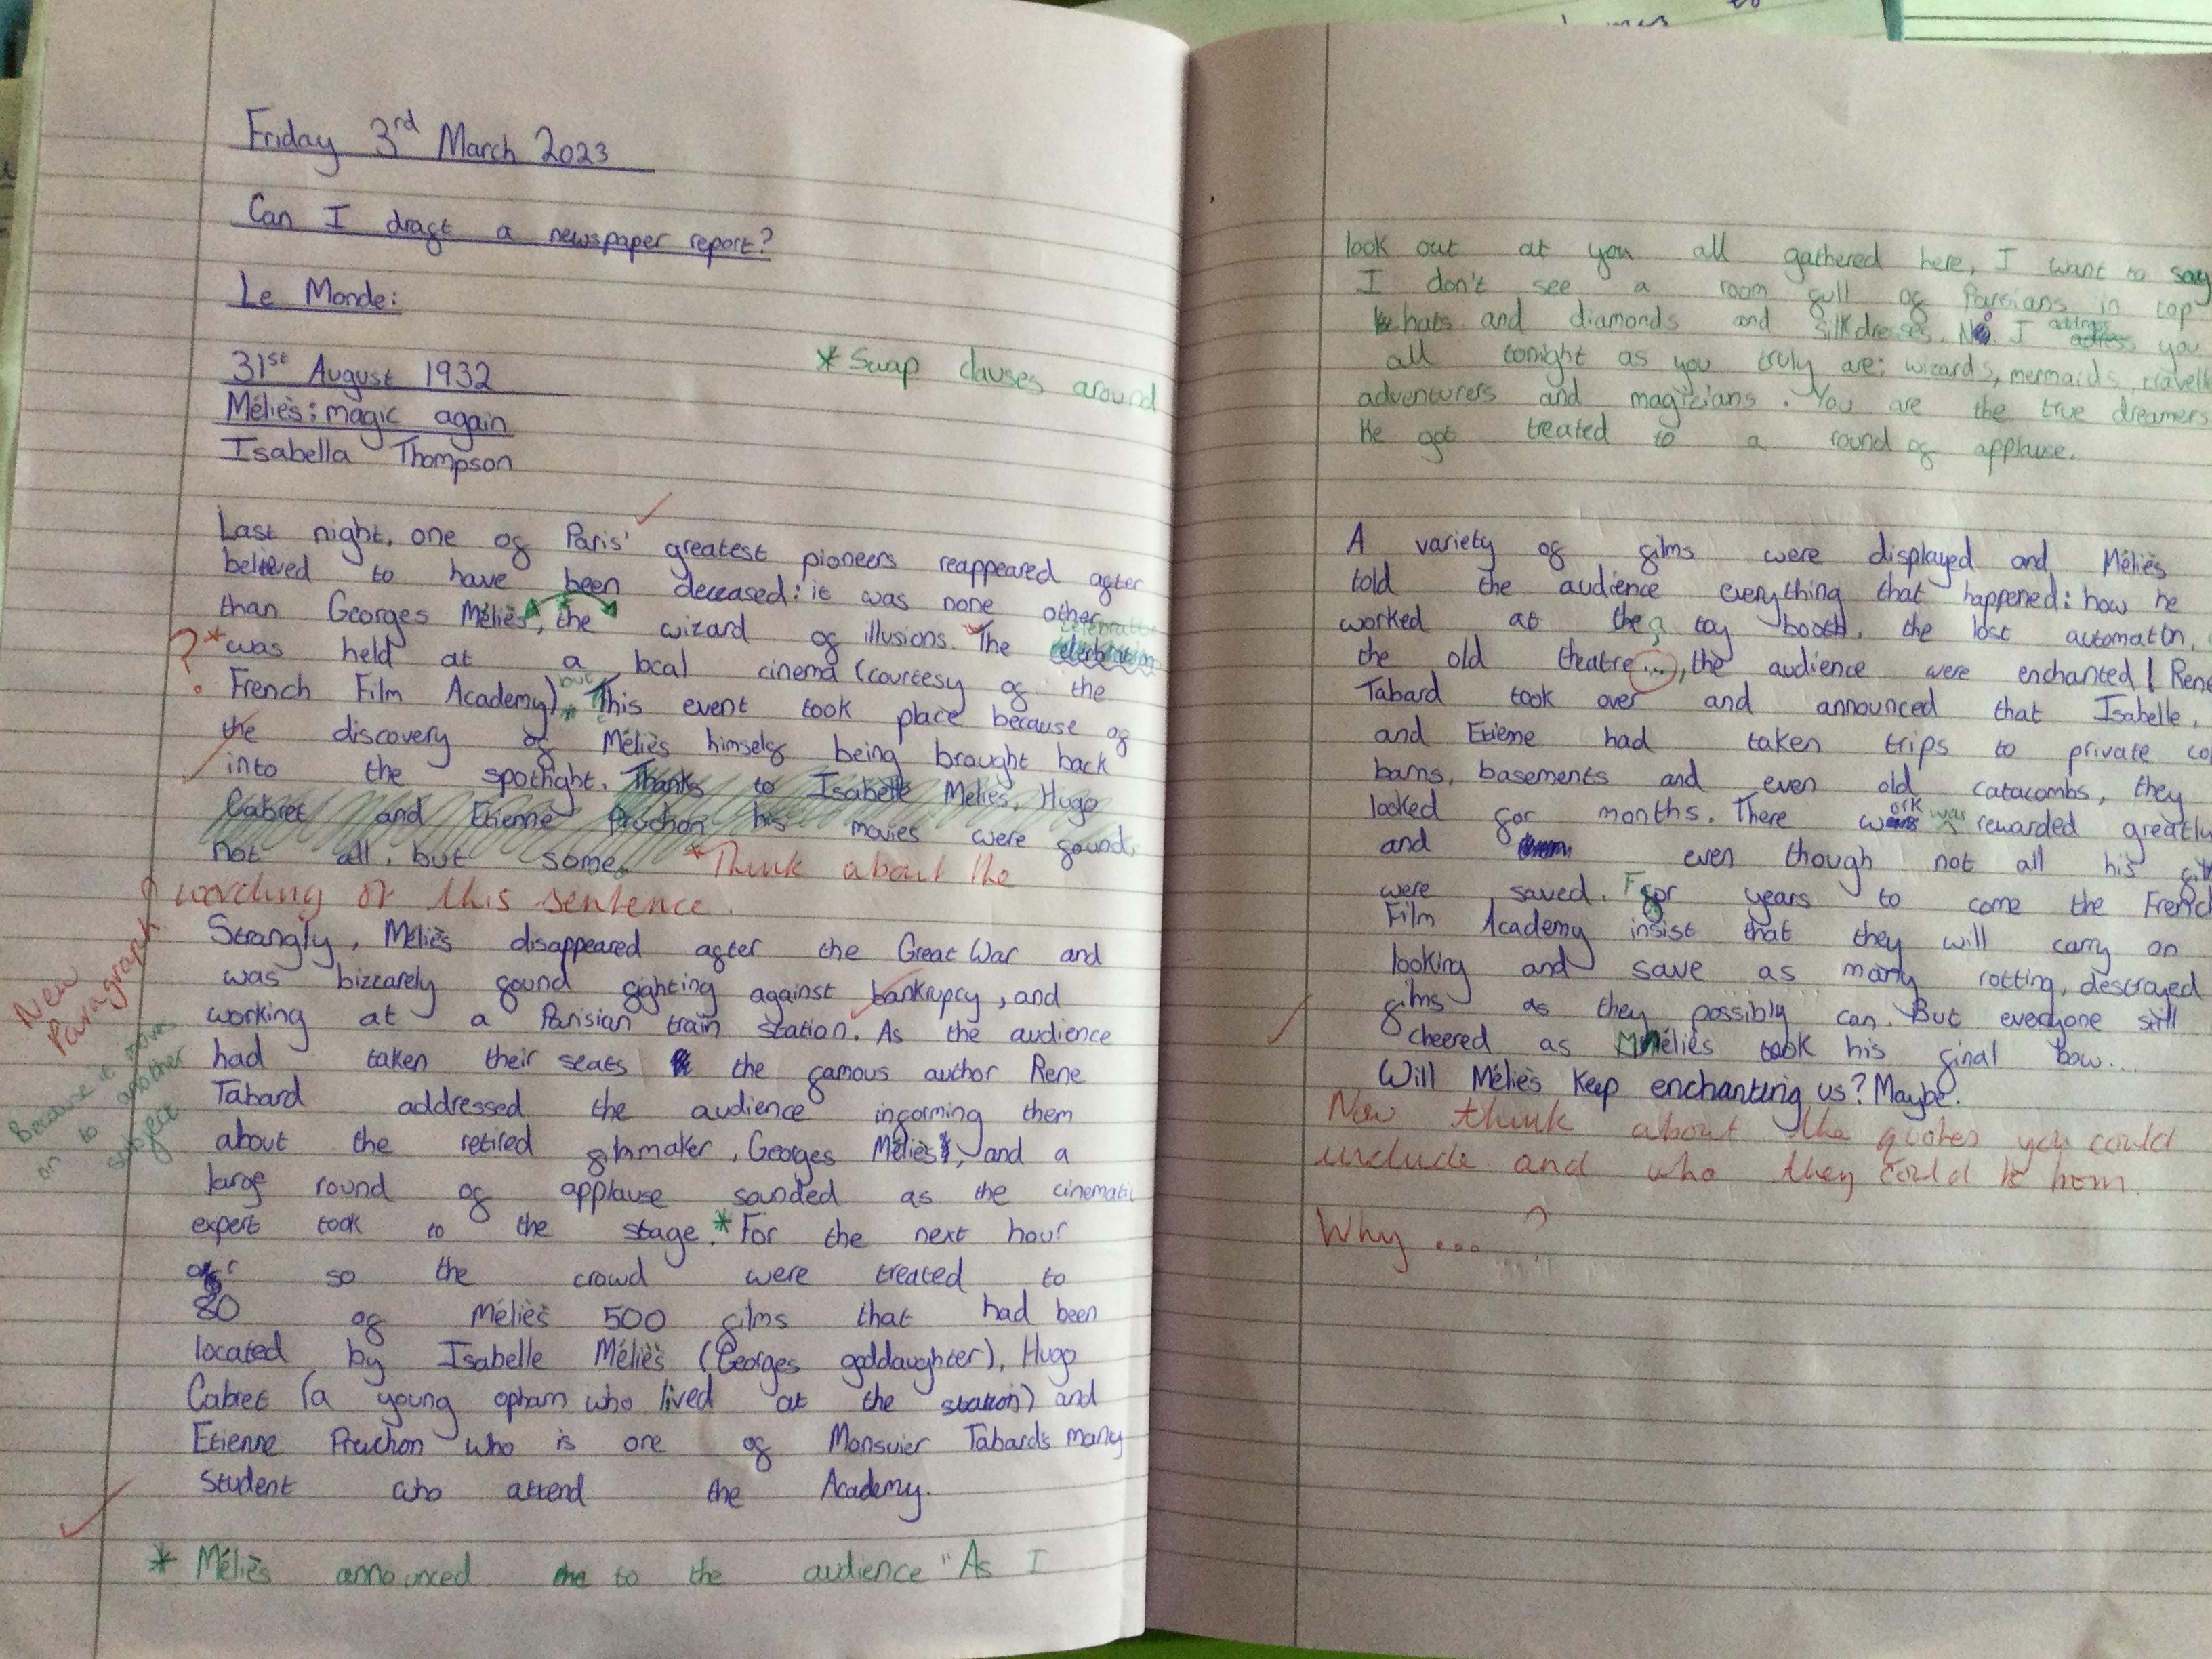 Friday 3rd March 2023
Can I draft a newspaper report?
Le Monde:
31st August 1932
* Swap clauses around
Méliès: magic again
Isabella Thompson
Last night, one of Paris' greatest pioneers reappeared after
believed to have been deceased: it was none other
than Georges Méliès, the wizard of illusions. The celebration
?* was held at a local cinema (courtesy of the
French Film Academy), but This event took place because of
the discovery of Méliès himself being brought back
into the spotlight. Thanks to Isabelle Méliès, Hugo
Cabret and Etienne Pruchon his movies were found,
not all, but some. * Think about the
wording of this sentence.
New
Paragraph
Because it moves
on to another
subject
Strangly, Méliès disappeared after the Great War and
was bizzarely found fighting against bankrupcy, and
working at a Parisian train station. As the audience
had taken their seats the famous author Rene
Tabard addressed the audience informing them
about the retired filmmaker, Georges Méliès, and a
large round of applause sounded as the cinematic
expert took to the stage.* For the next hour
or so the crowd were treated to
80 of Méliès 500 films that had been
located by Isabelle Méliès (Georges goddaughter), Hugo
Cabret (a young opham who lived at the station) and
Etienne Pruchon who is one of Monsuier Tabards many
student who attend the Academy.
* Méliès announced the to the audience "As I
look out at you all gathered here, I want to say
I don't see a room full of Parsians in top
hats and diamonds and silk dresses. No I address adress you
all tonight as you truly are: wizards, mermaids,
adventurers and magicians. You are the true dreamers
He got treated to a round of applause.
A variety of films were displayed and Méliès
told the audience everything that happened: how he
worked at the a toy booth, the lost automaton,
the old theatre..., the audience were enchanted! Rene
Tabard took over and announced that Isabelle,
and Etieme had taken trips to private
barns, basements and even old catacombs, they
looked for months. There work was rewarded greatly
and even though not all his
were saved. For years to come the French
Film Academy insist that they will carry on
looking and save as many rotting, destroyed
films as they possibly can. But everyone still
cheered as Méliès took his final bow...
Will Méliès keep enchanting us? Maybe.
Now think about the quotes you could
include and who they could be from.
Why ... ?